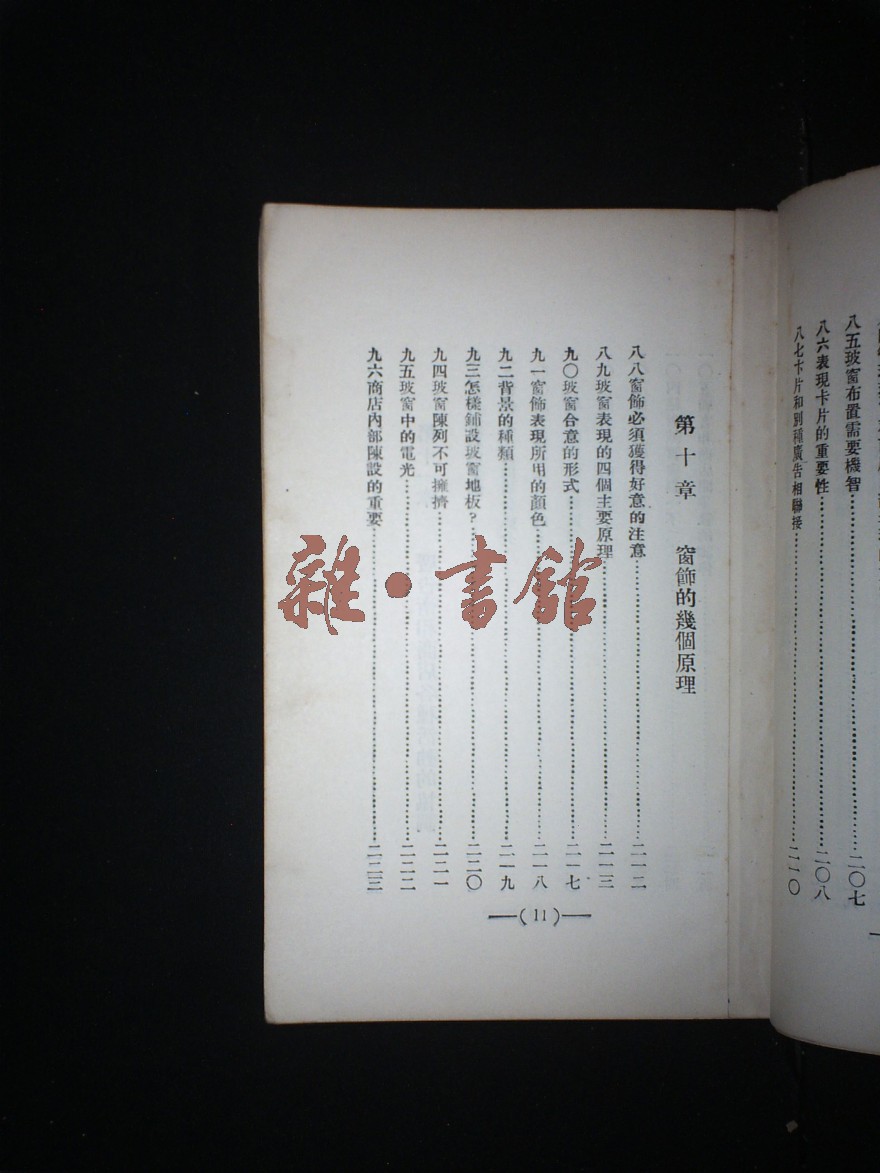 八五玻窗布置需要機智……二〇七
八六表現卡片的重要性……二〇八
八七卡片和別種廣告相聯接……二一〇
第十章 窗飾的幾個原理
八八窗飾必須獲得好意的注意……二一二
八九玻窗表現的四個主要原理……二一三
九〇玻窗合意的形式……二一七
九一窗飾表現所用的顏色……二一八
九二背景的種類……二一九
九三怎樣鋪設玻窗地板？……二二〇
九四玻窗陳列不可擁擠……二二一
九五玻窗中的電光……二二二
九六商店內部陳設的重要……二二三
—(11)—
雜·書館